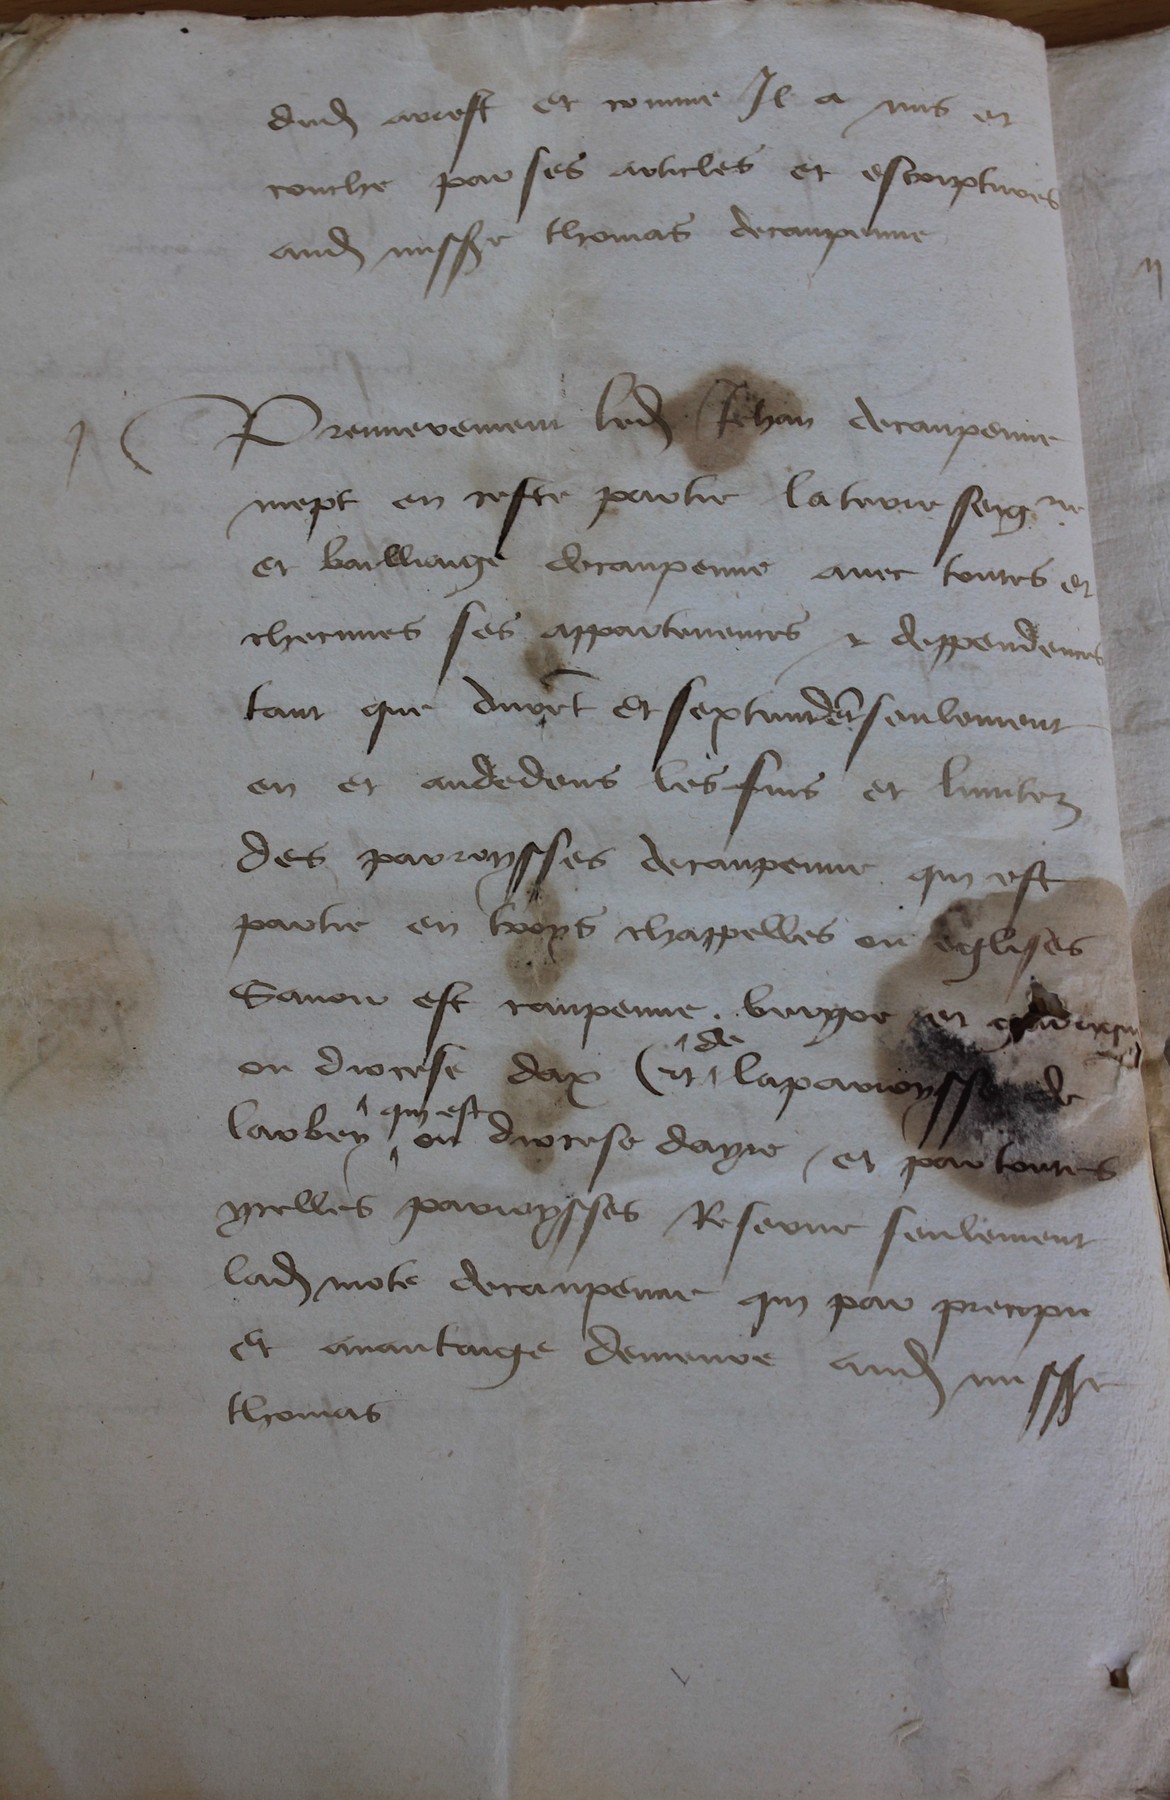 dud arrest et comme Il a mis et
couche par ses articles et escriptures
aud missre thomas decaupenne
Premierement led Jehan decaupenne
mept en ceste partie laterre seigrie
et bailliaige decaupenne avec toutes et
checunes ses appartenences et deppendences
tant que durẽt et sextendẽt seulement
en et audedens les fins et limites
des parroysses decaupenne qui est
partie en troys chappelles ou eglises
Sauoir est caupenne. bergoe et
ou diocese dax et de laparroysse de
larbey qui est ou diocese dayre, et par toutes
ycelles parroysses Reserue seulement
lad mote decaupenne qui par precipu
et auantaige demeure aud missre
thomas